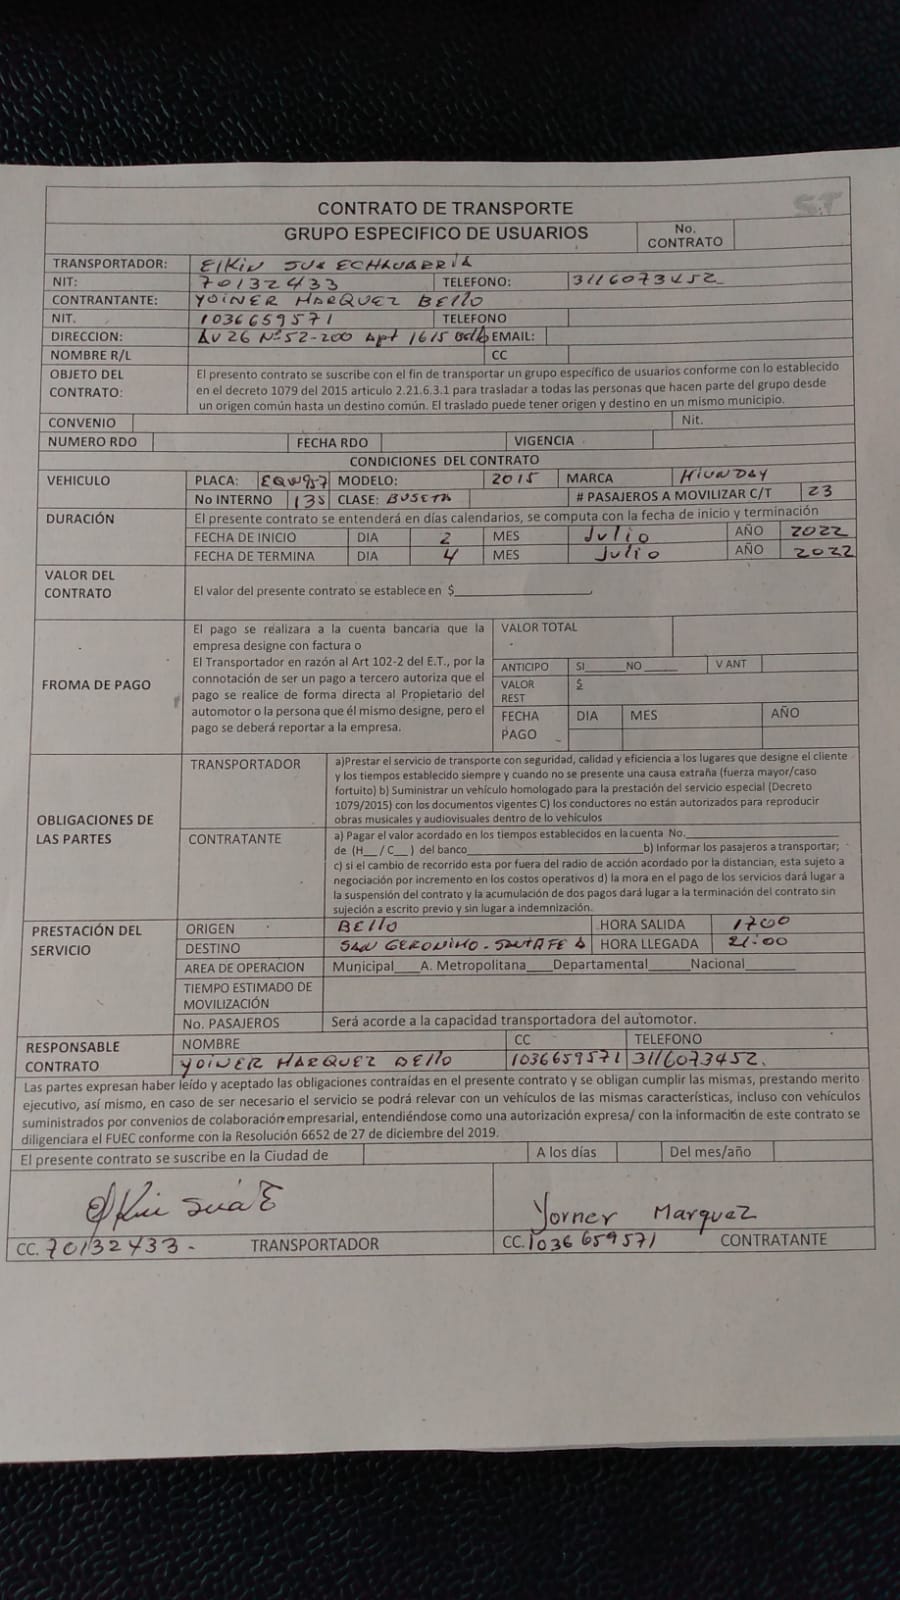 ST
CONTRATO DE TRANSPORTE
GRUPO ESPECIFICO DE USUARIOS
No. CONTRATO
TRANSPORTADOR: ElKin SUA ECHAVARRIA
NIT: 70132433 TELEFONO: 3116073452
CONTRANTANTE: YOINER MARQUEZ BEllO
NIT. 1036659571 TELEFONO
DIRECCION: AV 26 Nº 52-200 Apt 1615 EMAIL:
NOMBRE R/L CC
OBJETO DEL CONTRATO: El presento contrato se suscribe con el fin de transportar un grupo específico de usuarios conforme con lo establecido
en el decreto 1079 del 2015 articulo 2.21.6.3.1 para trasladar a todas las personas que hacen parte del grupo desde
un origen común hasta un destino común. El traslado puede tener origen y destino en un mismo municipio.
CONVENIO Nit.
NUMERO RDO FECHA RDO VIGENCIA
CONDICIONES DEL CONTRATO
VEHICULO PLACA: MODELO: 2015 MARCA HIUNDAY
No INTERNO 138 CLASE: BUSETA # PASAJEROS A MOVILIZAR C/T 23
DURACIÓN El presente contrato se entenderá en días calendarios, se computa con la fecha de inicio y terminación
FECHA DE INICIO DIA 2 MES Julio AÑO 2022
FECHA DE TERMINA DIA 4 MES Julio AÑO 2022
VALOR DEL CONTRATO El valor del presente contrato se establece en $
FROMA DE PAGO El pago se realizara a la cuenta bancaria que la
empresa designe con factura o
El Transportador en razón al Art 102-2 del E.T., por la
connotación de ser un pago a tercero autoriza que el
pago se realice de forma directa al Propietario del
automotor o la persona que él mismo designe, pero el
pago se deberá reportar a la empresa.
VALOR TOTAL
ANTICIPO SI NO V ANT
VALOR REST $
FECHA PAGO DIA MES AÑO
OBLIGACIONES DE LAS PARTES
TRANSPORTADOR a)Prestar el servicio de transporte con seguridad, calidad y eficiencia a los lugares que designe el cliente
y los tiempos establecido siempre y cuando no se presente una causa extraña (fuerza mayor/caso
fortuito) b) Suministrar un vehículo homologado para la prestación del servicio especial (Decreto
1079/2015) con los documentos vigentes C) los conductores no están autorizados para reproducir
obras musicales y audiovisuales dentro de lo vehículos
CONTRATANTE a) Pagar el valor acordado en los tiempos establecidos en la cuenta No.
de (H__/C__) del banco b) Informar los pasajeros a transportar;
c) si el cambio de recorrido esta por fuera del radio de acción acordado por la distancian, esta sujeto a
negociación por incremento en los costos operativos d) la mora en el pago de los servicios dará lugar a
la suspensión del contrato y la acumulación de dos pagos dará lugar a la terminación del contrato sin
sujeción a escrito previo y sin lugar a indemnización.
PRESTACIÓN DEL SERVICIO
ORIGEN BEllO HORA SALIDA 1700
DESTINO SAN GERONIMO - SANTAFE A HORA LLEGADA 21:00
AREA DE OPERACION Municipal____A. Metropolitana____Departamental______Nacional_______
TIEMPO ESTIMADO DE MOVILIZACIÓN
No. PASAJEROS Será acorde a la capacidad transportadora del automotor.
RESPONSABLE CONTRATO NOMBRE CC TELEFONO
YOINER MARQUEZ BEllO 1036659571 3116073452.
Las partes expresan haber leído y aceptado las obligaciones contraídas en el presente contrato y se obligan cumplir las mismas, prestando merito
ejecutivo, así mismo, en caso de ser necesario el servicio se podrá relevar con un vehículos de las mismas características, incluso con vehículos
suministrados por convenios de colaboración empresarial, entendiéndose como una autorización expresa/ con la información de este contrato se
diligenciara el FUEC conforme con la Resolución 6652 de 27 de diciembre del 2019.
El presente contrato se suscribe en la Ciudad de A los días Del mes/año
Elkin Suá Yorner Marquez
CC. 70132433- TRANSPORTADOR CC. 1036 659571 CONTRATANTE